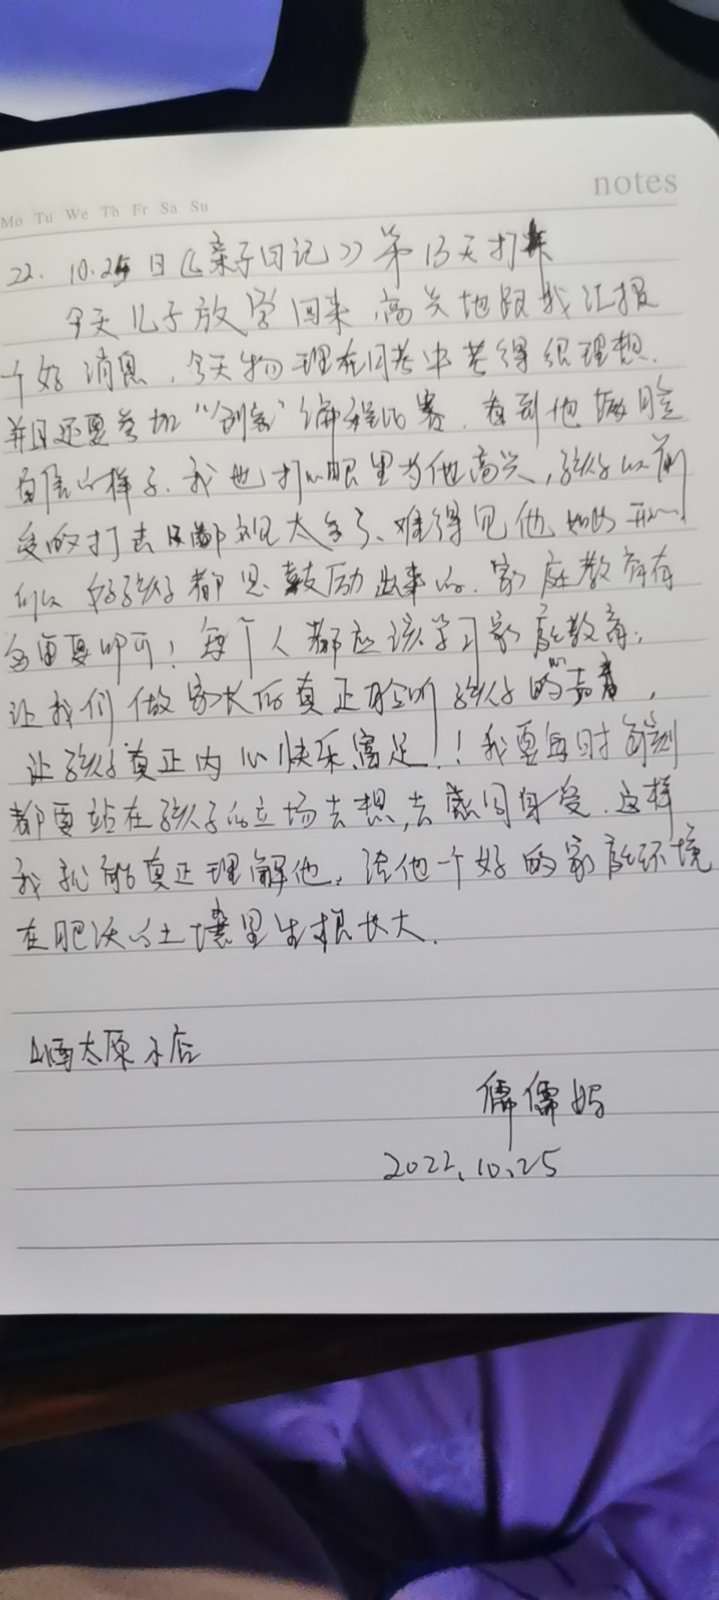 notes
Mo Tu We Th Fr Sa Su
22. 10.25日《亲子日记》第13天打卡
今天儿子放学回来 高兴地跟我汇报
个好消息，今天物理在同卷中考得很理想.
并且还要参加“创客”编程比赛. 看到他满脸
自信的样子. 我也打心眼里为他高兴，孩子以前
受的打击太多了、难得见他如此开心
所以好孩子都是鼓励出来的. 家庭教育有
多重要 ！每个人都应该学习家庭教育，
让我们做家长的真正聆听孩子的声音，
让孩子真正内心快乐富足！！我要每时每刻
都要站在孩子的立场去想，去感同身受. 这样
我就能真正理解他，给他一个好的家庭环境
在肥沃的土壤里生根长大.
山西太原小店
儒儒妈
2022.10.25